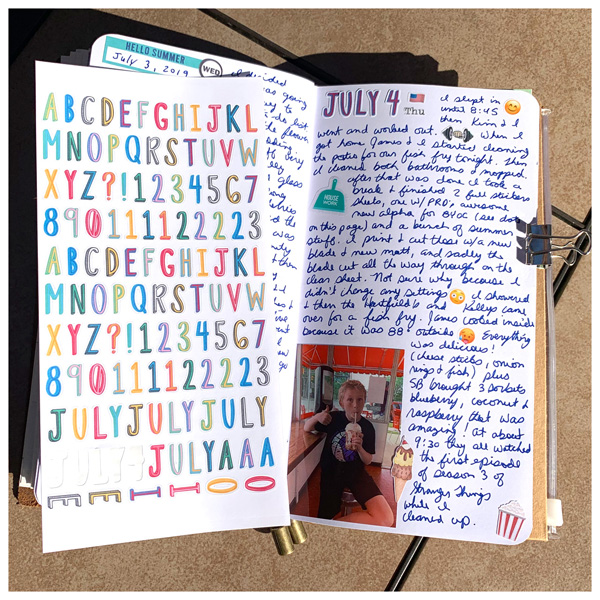 HELLO SUMMER
July 3, 2019
WED
ABCDEFGHIJKL
MNOPQRSTUVW
XYZ?!1234567
8901111222223
ABCDEFGHIJKL
MNOPQRSTUVW
XYZ?!1234567
8901111222223
JULYJULYJULY
JULY4JULYAAA
EEIIOO
JULY 4
Thu
I slept in
until 8:45
then Kim & I
went and worked out. When I
got home James & I started cleaning
the patio for our fish fry tonight. then
I cleaned both bathrooms & mopped.
after that was done I took a
break & finished 2 full stickers
HOUSE WORK
sheets, one w/ PRD's awesome
new alpha for BYOC (see dots
on this page) and a bunch of summer
stuff. I print & cut those w/a new
blade & new matt, and sadly the
blade cut all the way through on the
clear sheet. Not sure why because I
didn't change any settings I showered
& then the Hatfields and Kellys came
over for a fish fry. James cooked inside
because it was 88° outside Everything
was delicious!
(cheese sticks, onion
rings & fish) plus
SB brought 3 sorbets
blueberry, coconut &
raspberry that was
amazing! at about
9:30 they all watched
the first episode
of season 3 of
Stranger Things
while I
cleaned up.